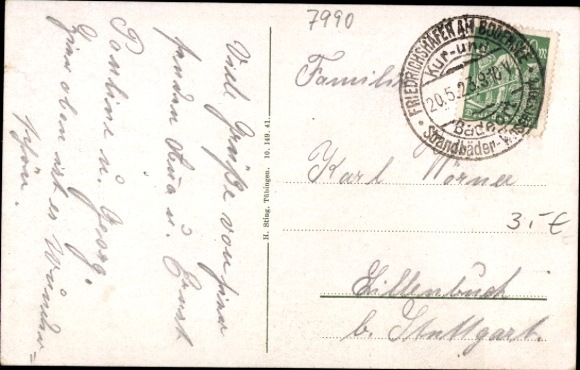 7990
Viele Grüße von hier
senden Anna u. Ernst
Pauline u. Georg.
Hier oben ist es wunder=
schön.
H. Sting, Tübingen. 10. 149. 41.
FRIEDRICHSHAFEN AM BODENSEE
Kur- und
20.5.23.8-10 V.
Bade
Strandbäder
Familie
Karl
3.- €
Sillenbuch
b. Stuttgart.